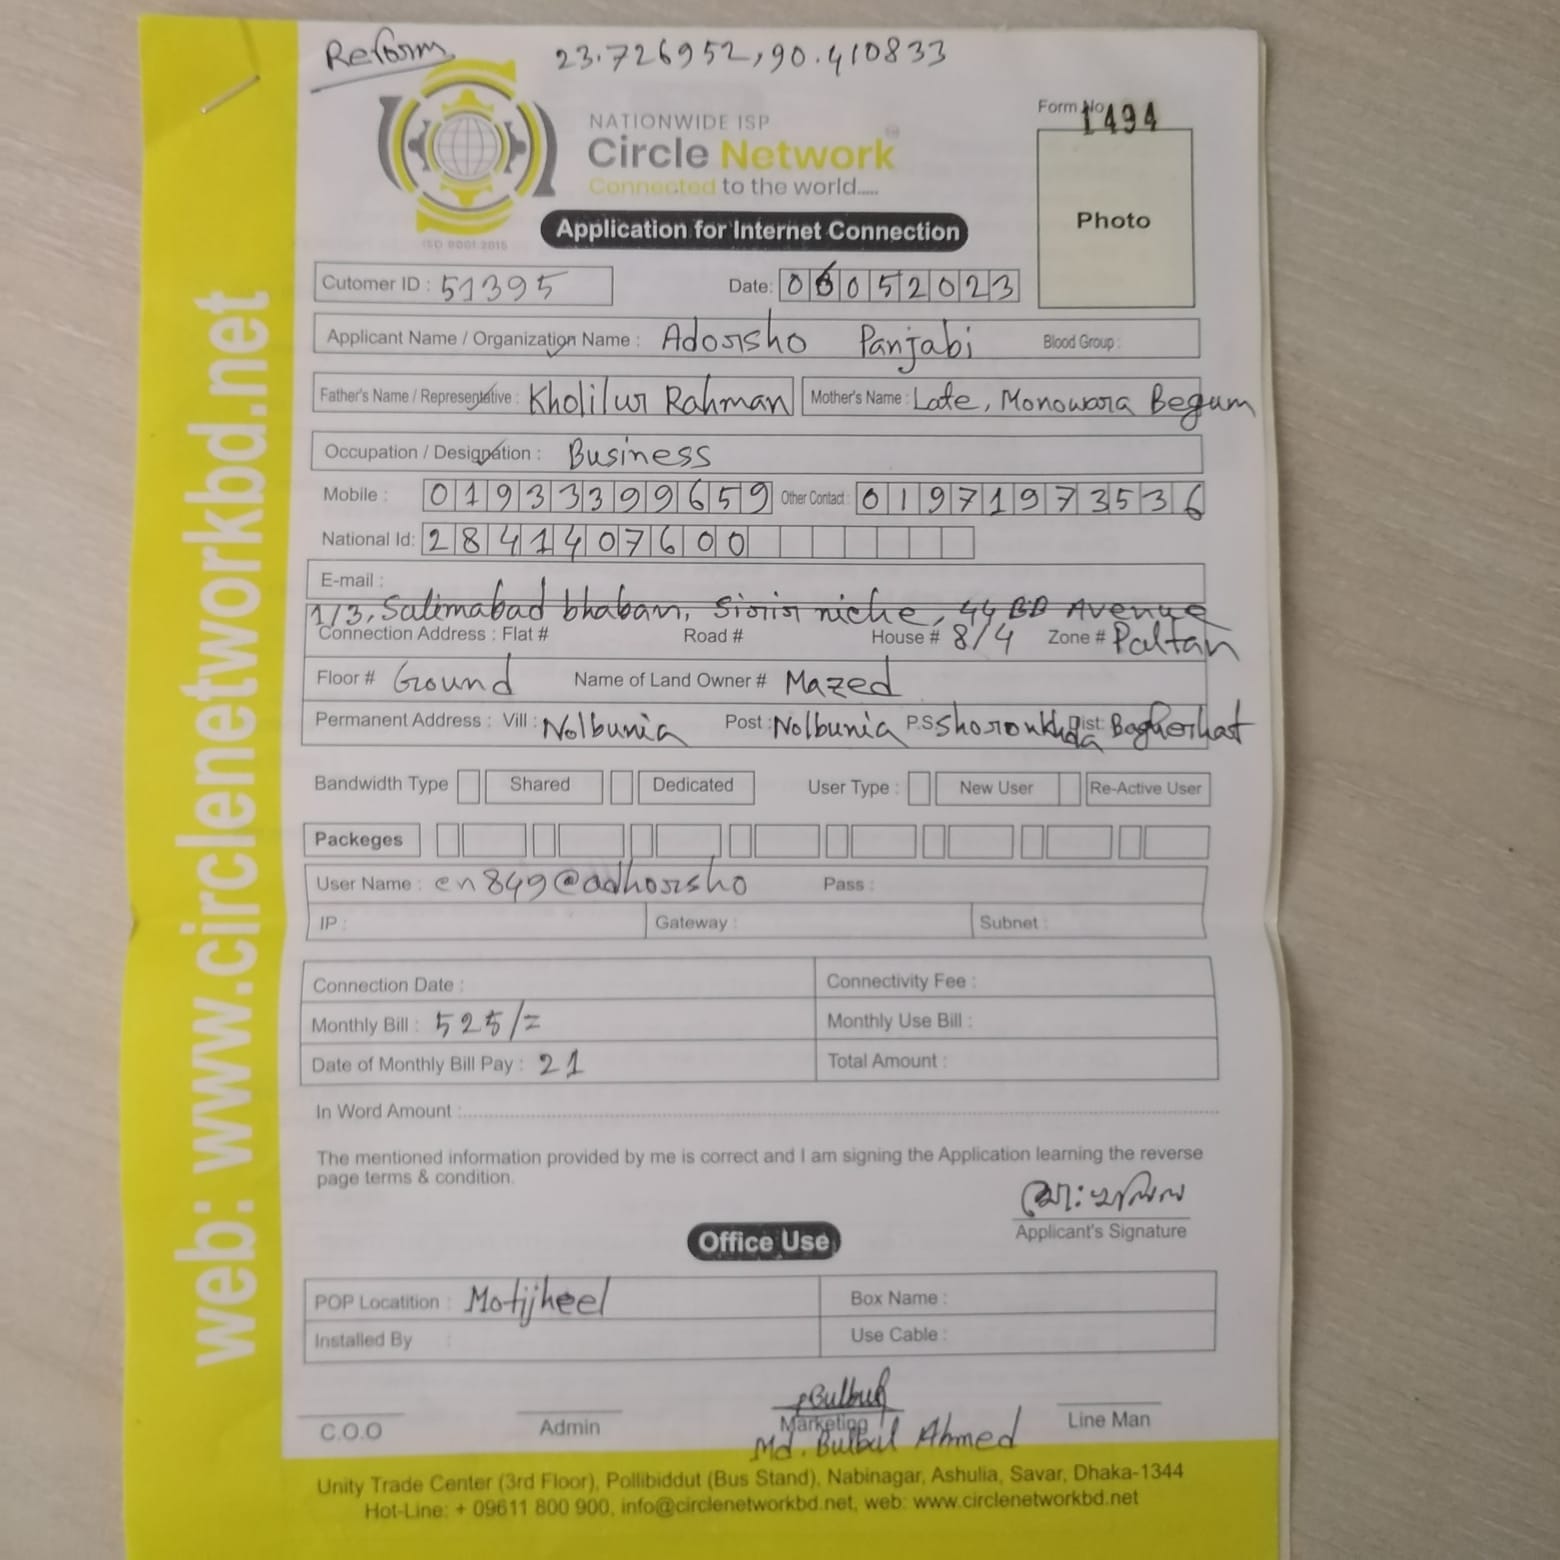 Reform 23.726952,90.410833
Form No 1494
NATIONWIDE ISP
Circle Network
Connected to the world.....
ISO 9001:2015
Photo
Application for Internet Connection
Cutomer ID : 51395 Date: 06052023
Applicant Name / Organization Name : Adorsho Panjabi Blood Group :
Father's Name / Representative : Kholilur Rahman Mother's Name : Late, Monowara Begum
Occupation / Designation : Business
Mobile : 01933399659 Other Contact : 01971973536
National Id: 2841407600
E-mail :
1/3, Salimabad bhaban, Sirir niche, 44 BB Avenue
Connection Address : Flat # Road # House # 8/4 Zone # Paltan
Floor # Ground Name of Land Owner # Mazed
Permanent Address : Vill : Nolbunia Post : Nolbunia P.S Shoronkhda Dist: Bagherhat
Bandwidth Type Shared Dedicated User Type : New User Re-Active User
Packeges
User Name : en849@adhorsho Pass :
IP : Gateway : Subnet :
Connection Date : Connectivity Fee :
Monthly Bill : 525/= Monthly Use Bill :
Date of Monthly Bill Pay : 21 Total Amount :
In Word Amount :
The mentioned information provided by me is correct and I am signing the Application learning the reverse
page terms & condition.
মো: খলিল
Applicant's Signature
Office Use
POP Locatition : Motijheel Box Name :
Installed By : Use Cable :
Bulbul
C.O.O Admin Marketing Line Man
Md. Bulbul Ahmed
Unity Trade Center (3rd Floor), Pollibiddut (Bus Stand), Nabinagar, Ashulia, Savar, Dhaka-1344
Hot-Line: + 09611 800 900, info@circlenetworkbd.net, web: www.circlenetworkbd.net
web: www.circlenetworkbd.net